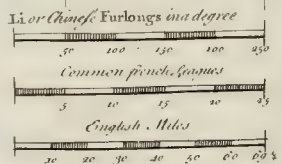 Li or Chineſe Furlongs in a degree
50 100 150 200 250
Common french Leagues
5 10 15 20 25
Engliſh Miles
10 20 30 40 50 60 69½